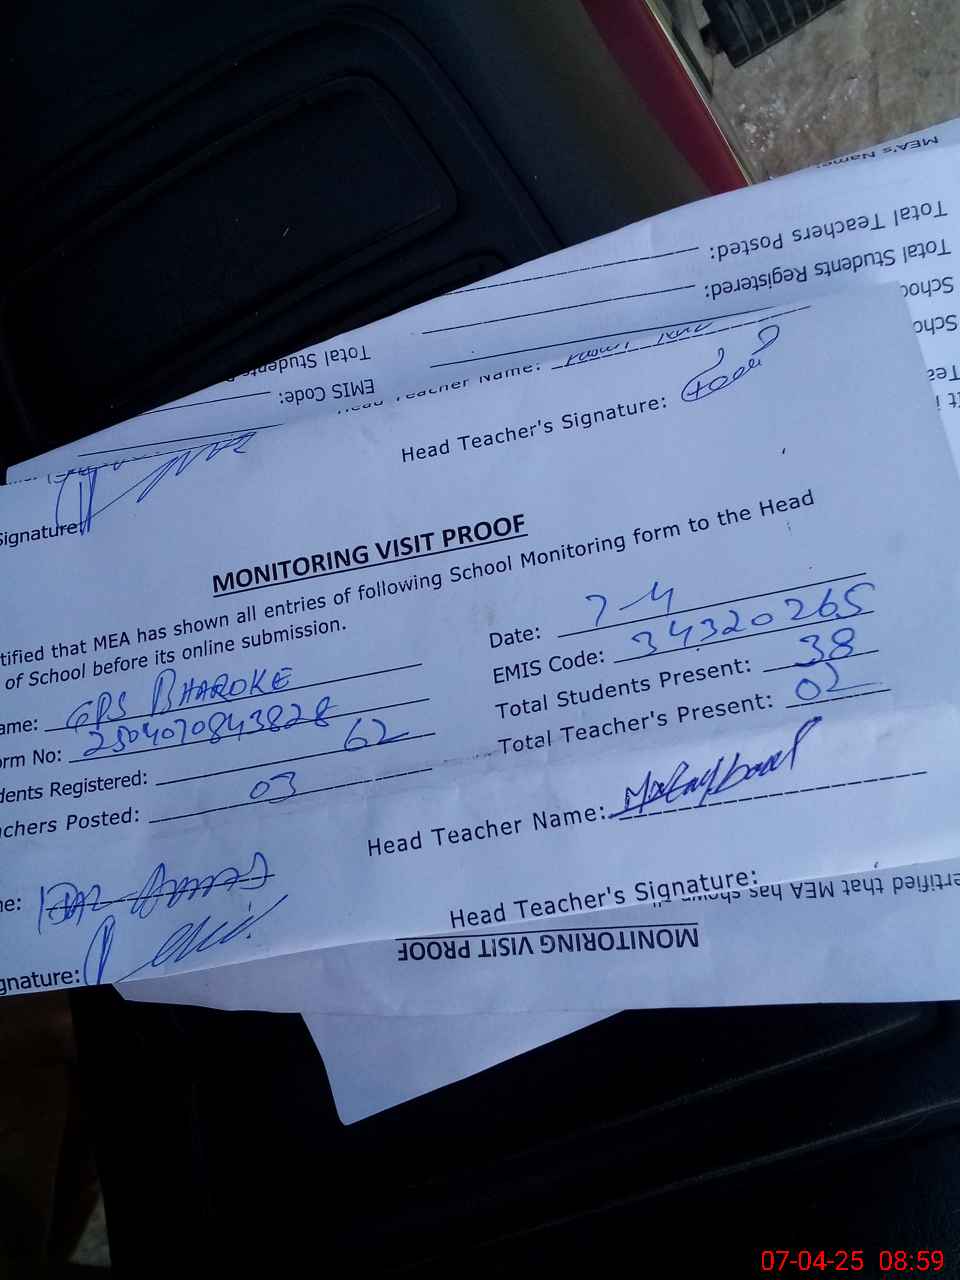 MEA's Name:
Total Teachers Posted:
Total Students Registered:
Total Students
EMIS Code:
Head Teacher Name:
Head Teacher's Signature:
Signature:
MONITORING VISIT PROOF
tified that MEA has shown all entries of following School Monitoring form to the Head
of School before its online submission.
ame: GPS BHAROKE
Date: 7-4
orm No: 2504070843828
EMIS Code: 34320265
dents Registered: 62
Total Students Present: 38
achers Posted: 03
Total Teacher's Present: 02
Head Teacher Name:
ne:
Head Teacher's Signature:
gnature:
ertified that MEA has shown
MONITORING VISIT PROOF
07-04-25 08:59